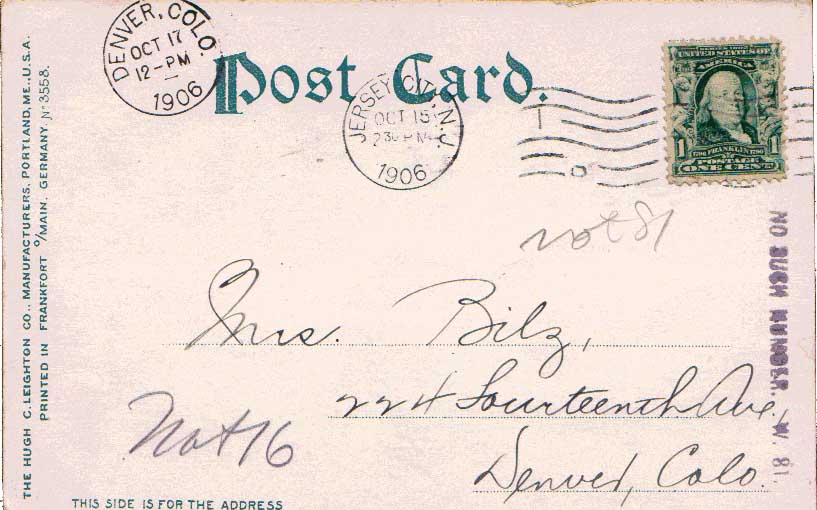 DENVER, COLO.
OCT 17
12-PM
1906
Post Card.
JERSEY CITY, N.J.
OCT 15
2 30 PM
1906
SERIES 1902
UNITED STATES OF
AMERICA
1706 FRANKLIN 1790
POSTAGE
1 ONE CENT 1
not 81
NO SUCH NUMBER. W. 81.
Mrs. Bilz,
224 Fourteenth Ave.
Denver, Colo.
Not 16
THIS SIDE IS FOR THE ADDRESS
THE HUGH C. LEIGHTON CO., MANUFACTURERS, PORTLAND, ME., U.S.A.
PRINTED IN FRANKFORT O/MAIN, GERMANY. No 3558.